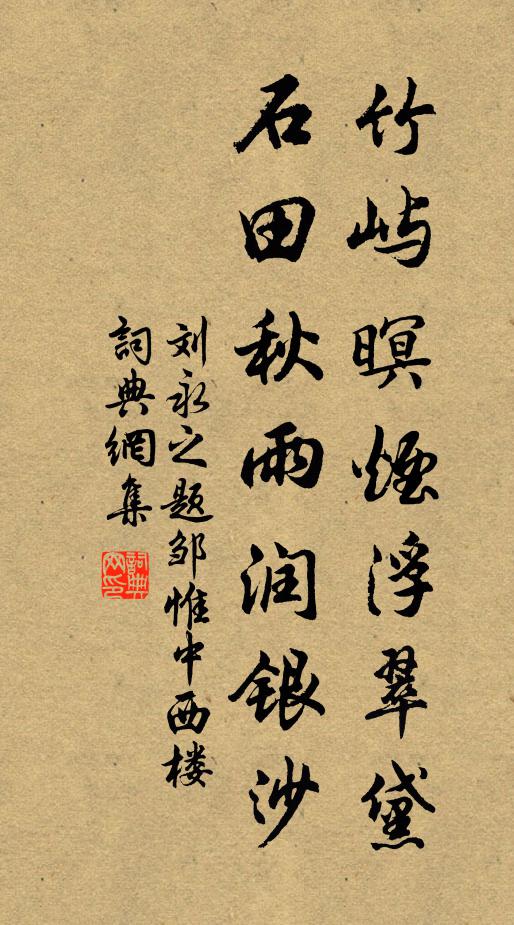 竹屿暝煙浮翠黛
石田秋雨润银沙
刘永之题邹惟中西楼
詞典網集
詞典网印